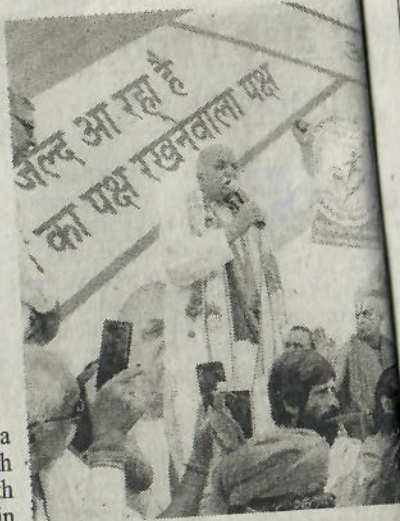 जल्द आ रहा है
का पक्ष रखनेवाला पक्ष
a
h
th
in